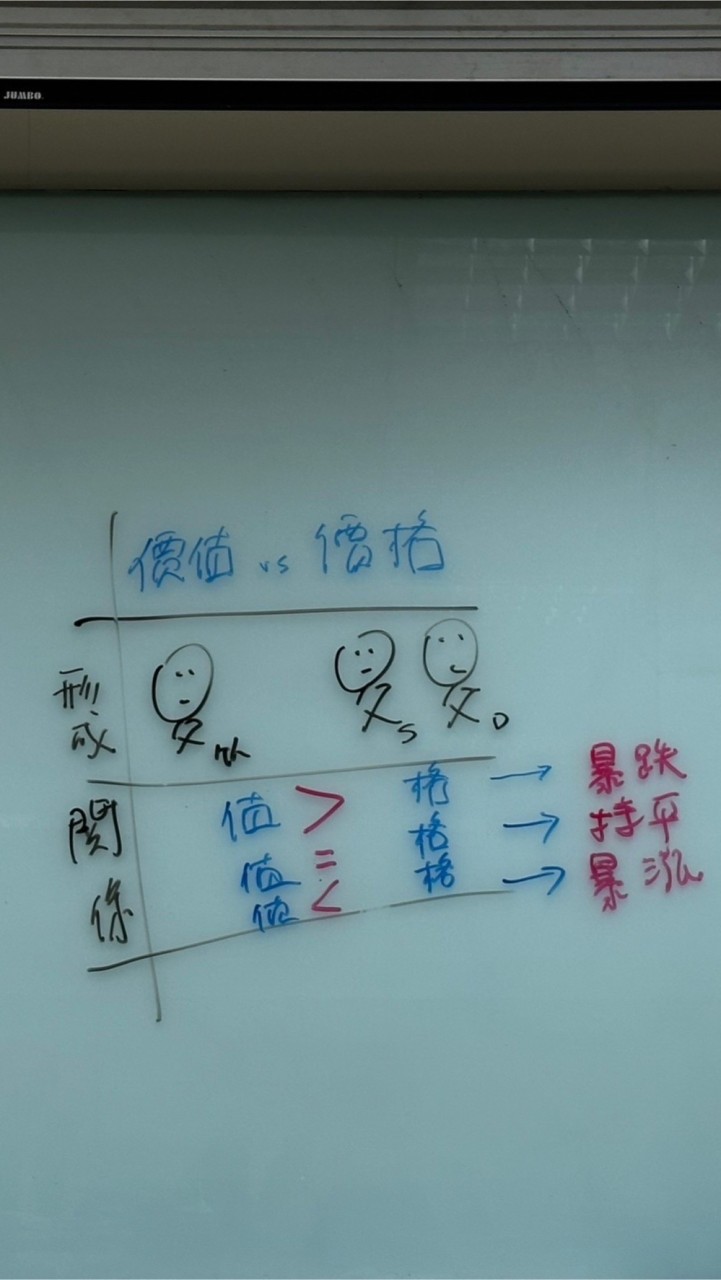 JUMBO
價值 vs 價格
形成
S D
關係
值 > 格 → 暴跌
值 = 格 → 持平
值 < 格 → 暴漲